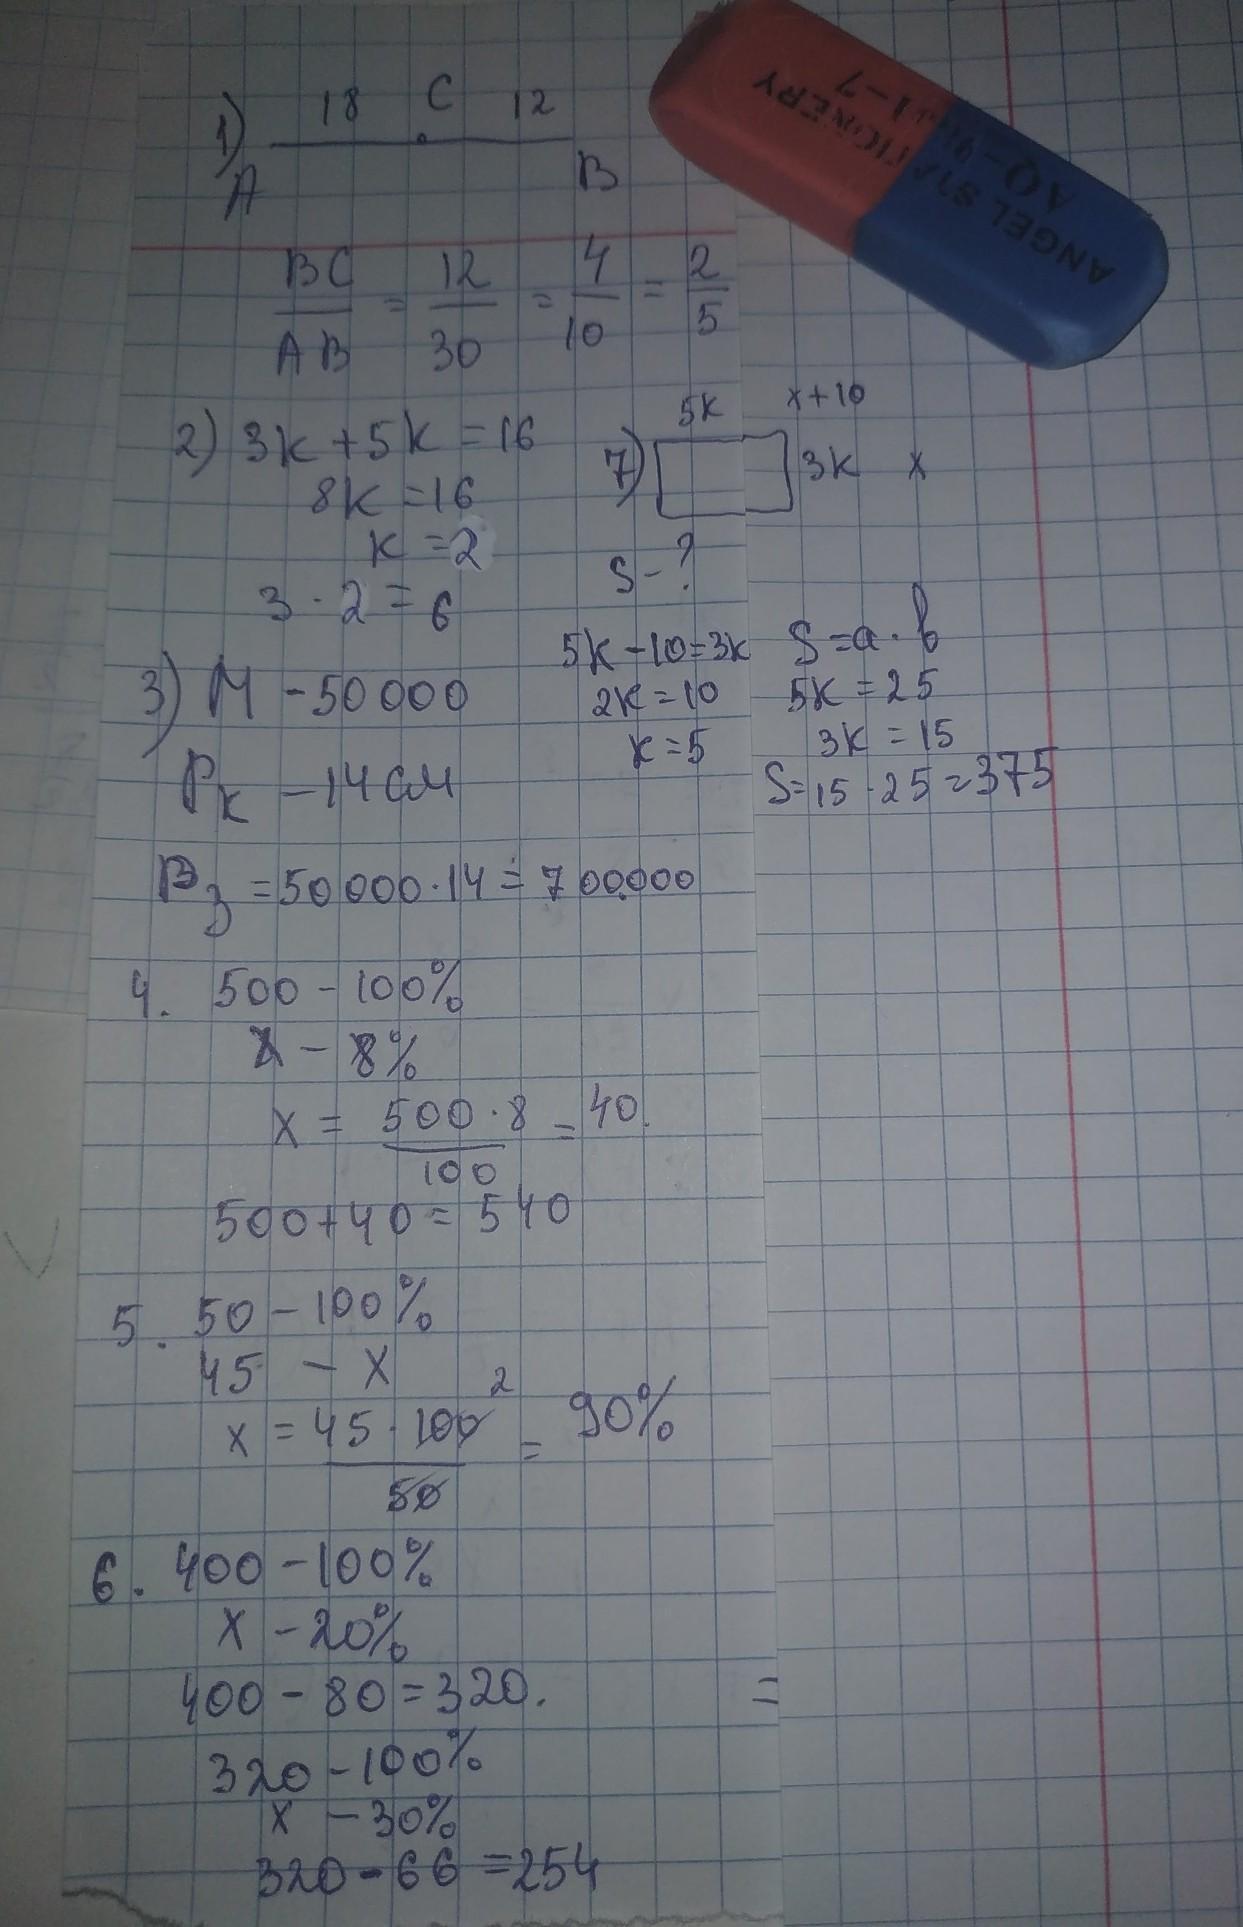 1) 18 C 12
A B
BC/AB = 12/30 = 4/10 = 2/5
2) 3k + 5k = 16
8k = 16
k = 2
3 · 2 = 6
3) М - 50 000
Рк - 14 см
Рз = 50 000 · 14 = 700000
4. 500 - 100%
x - 8%
x = 500 · 8/100 = 40.
500 + 40 = 540
5. 50 - 100%
45 - x
x = 45 · 100 2/50 = 90%
6. 400 - 100%
x - 20%
400 - 80 = 320.
320 - 100%
x - 30%
320 - 66 = 254
7) 5k x + 10
3k x
S - ?
5k - 10 = 3k
2k = 10
k = 5
S = a · b
5k = 25
3k = 15
S = 15 · 25 = 375
=
ANGEL STATIONERY